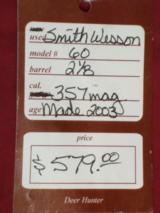 use Smith Wesson
model # 60
barrel 2 1/8
cal. .357 mag
age Made 2003
price
$579.00
Deer Hunter